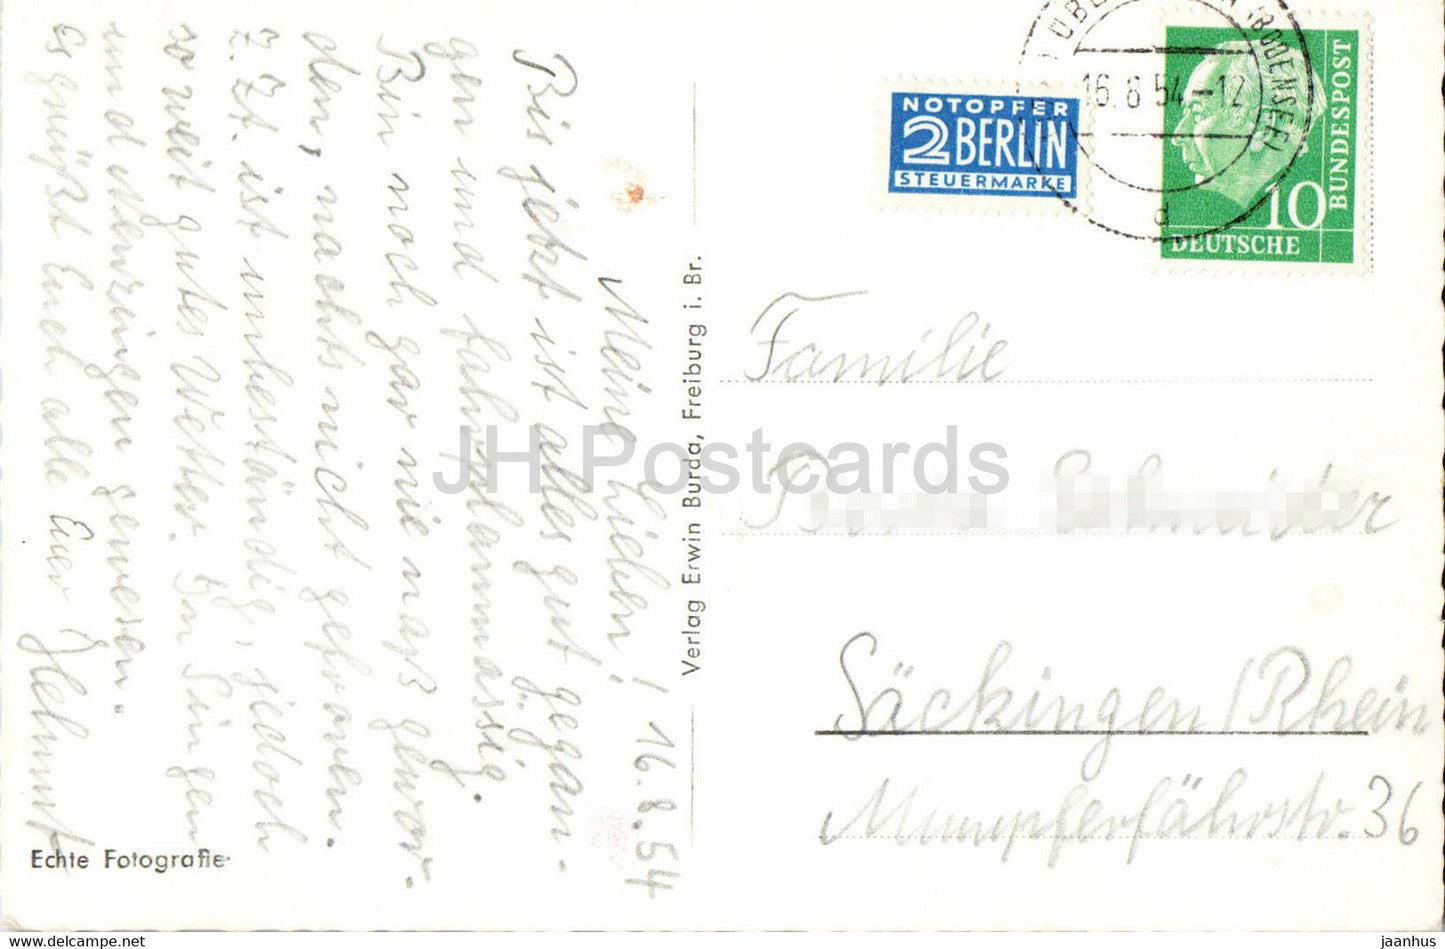 Meine Lieben! 16.8.54
Bis jetzt ist alles gut gegan-
gen und fahrplanmässig.
Bin noch gar nie naß gewor-
den, nachts nicht gefroren.
Z. Zt. ist unbeständig, jedoch
so weit gutes Wetter. In Singen
und gewesen.
Es grüßt Euch alle Euer Helmut
Echte Fotografie
Verlag Erwin Burda, Freiburg i. Br.
NOTOPFER
2 BERLIN
STEUERMARKE
(BODENSEE)
16.8.54.-12
d
10
DEUTSCHE
BUNDESPOST
Familie
Säckingen/Rhein
Mumpferfährstr. 36
JH Postcards
hippostcard.com
jaanhus